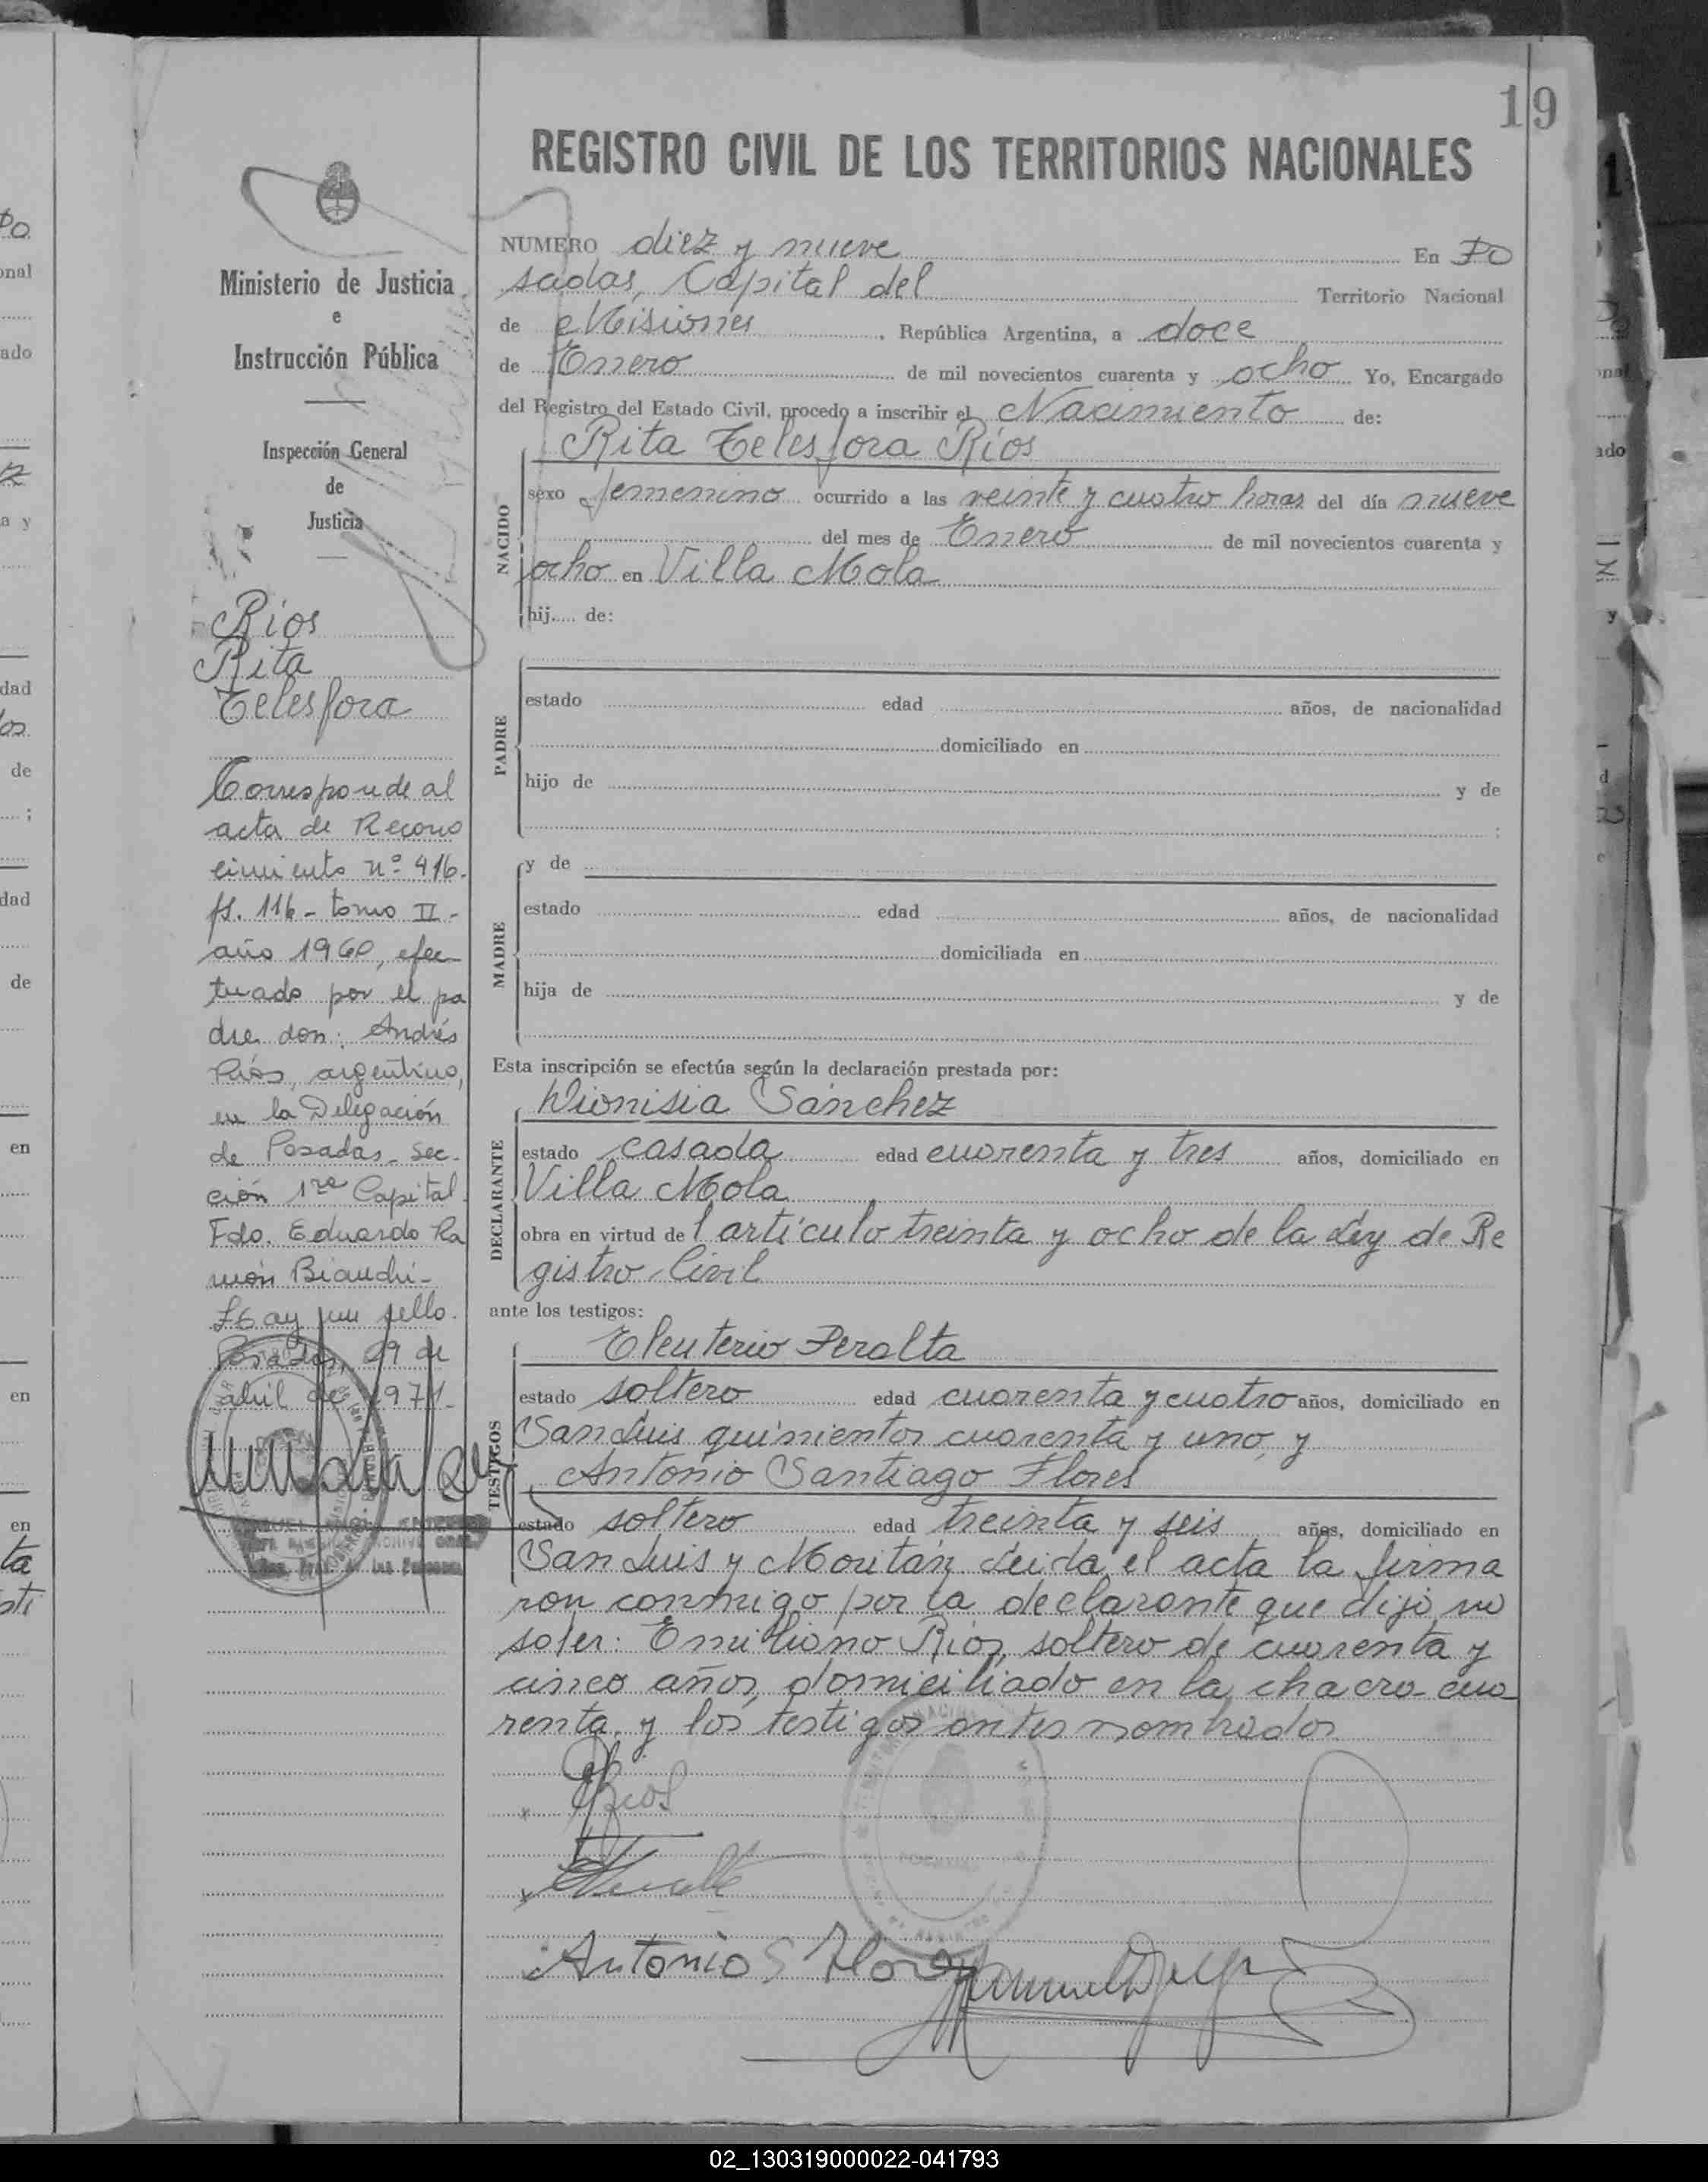 19
REGISTRO CIVIL DE LOS TERRITORIOS NACIONALES
Ministerio de Justicia
e
Instrucción Pública
Inspección General
de
Justicia
Ríos
Rita
Telesfora
Corresponde al
acta de Recono
cimiento nº 416.
fs. 116 - tomo II -
año 1960, efec
tuado por el pa
dre don: Andrés
Ríos, argentino,
en la Delegación
de Posadas - Sec-
ción 1ra Capital.
Fdo. Eduardo Ra
món Bianchi -
Hay un sello.
Posadas, 29 de
abril de 1971.
NUMERO diez y nueve En Po
sadas, Capital del Territorio Nacional
de Misiones, República Argentina, a doce
de Enero de mil novecientos cuarenta y ocho Yo, Encargado
del Registro del Estado Civil, procedo a inscribir el Nacimiento de:
Rita Telesfora Ríos
NACIDO
sexo femenino ocurrido a las veinte y cuatro horas del día nueve
del mes de Enero de mil novecientos cuarenta y
ocho en Villa Mola
hij.... de:
PADRE
estado edad años, de nacionalidad
domiciliado en
hijo de y de
;
MADRE
y de
estado edad años, de nacionalidad
domiciliada en
hija de y de
Esta inscripción se efectúa según la declaración prestada por:
Dionisia Sánchez
DECLARANTE
estado casada edad cuarenta y tres años, domiciliado en
Villa Mola
obra en virtud del artículo treinta y ocho de la Ley de Re
gistro Civil
ante los testigos:
Eleuterio Peralta
TESTIGOS
estado soltero edad cuarenta y cuatro años, domiciliado en
San Luis quinientos cuarenta y uno, y
Antonio Santiago Flores
estado soltero edad treinta y seis años, domiciliado en
San Luis y Moritán. Leida el acta la firma
ron conmigo por la declarante que dijo no
saber: Emiliano Ríos, soltero de cuarenta y
cinco años, domiciliado en la chacra cua
renta, y los testigos antes nombrados
Rios
Antonio S Flores
02_130319000022-041793